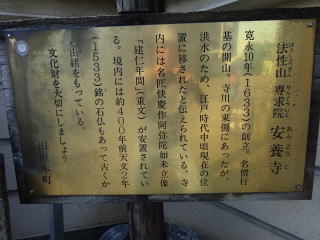 法性山 専求院 安養寺
ほうしょうざん せんぐういん あんようじ
寛永10年(1633)の創立。名僧行
基の開山。寺川の東側にあったが、
洪水のため、江戸時代中頃現在の位
置に移されたと伝えられている。寺
内には名匠快慶作阿弥陀如来立像
「建仁年間」(重文)が安置されてい
る。境内には約400年前天文2年
(1533)銘の石仏もあって古くか
らの由緒をもっている。
文化財を大切にしましょう
田原本町